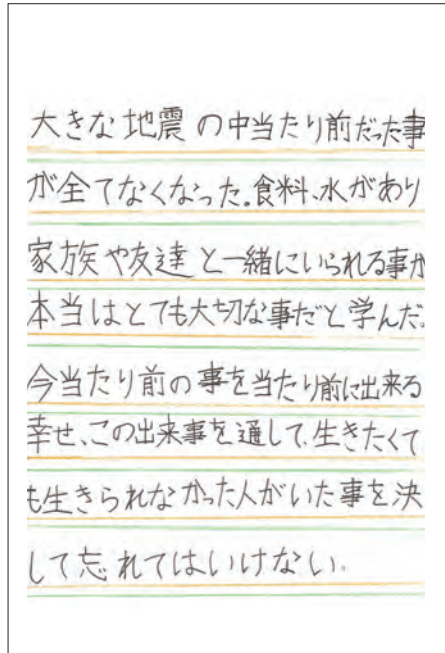 大きな地震の中当たり前だった事
が全てなくなった。食料、水があり
家族や友達と一緒にいられる事が
本当はとても大切な事だと学んだ。
今当たり前の事を当たり前に出来る
幸せ、この出来事を通して、生きたくて
も生きられなかった人がいた事を決
して忘れてはいけない。